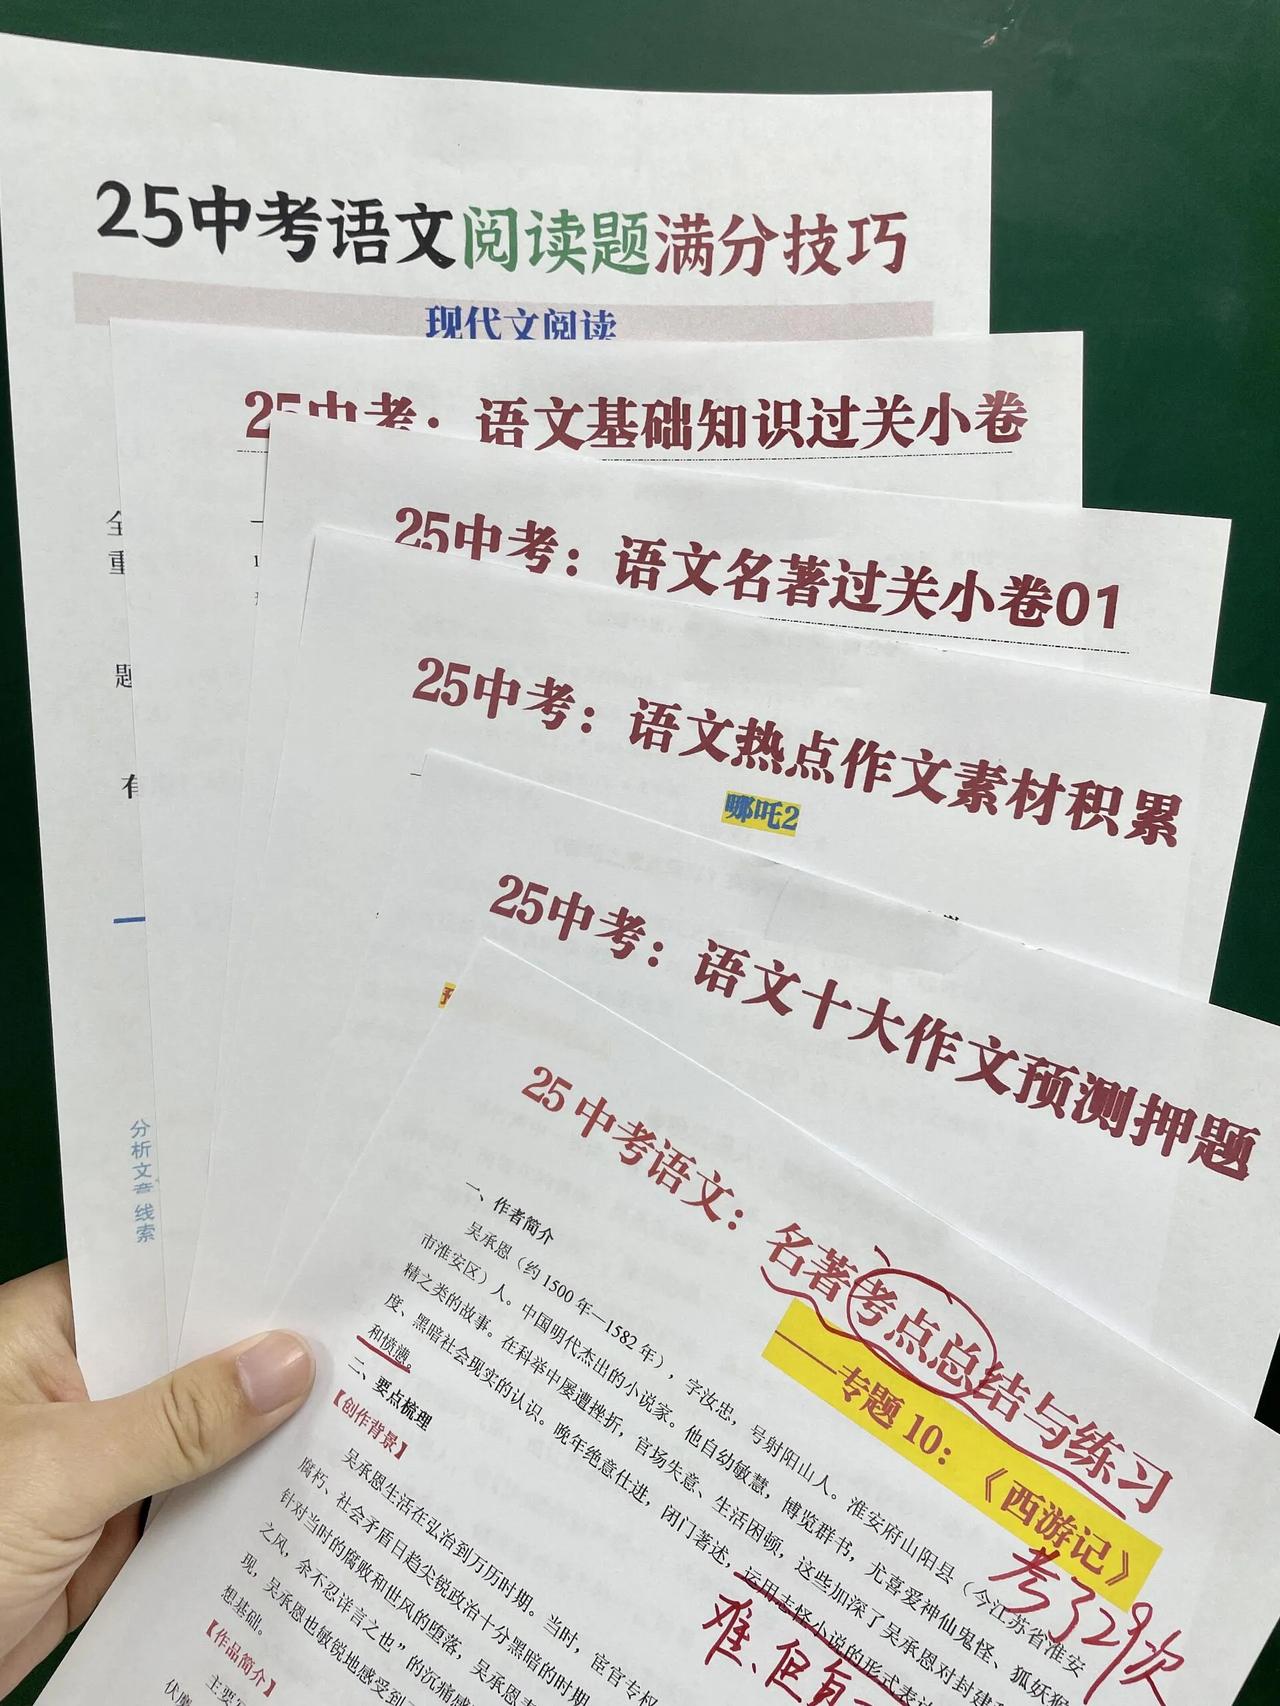 25中考语文阅读题满分技巧
现代文阅读
25中考：语文基础知识过关小卷
25中考：语文名著过关小卷01
25中考：语文热点作文素材积累
哪吒2
25中考：语文十大作文预测押题
题
有
分析文章线索
25中考语文：名著考点总结与练习
——专题10：《西游记》
考329次
难、但
一、作者简介
吴承恩（约1500年—1582年），字汝忠，号射阳山人。淮安府山阳县（今江苏省淮安
市淮安区）人。中国明代杰出的小说家。他自幼敏慧，博览群书，尤喜爱神仙鬼怪、狐妖猴
精之类的故事。在科举中屡遭挫折，官场失意、生活困顿，这些加深了吴承恩对封建
度、黑暗社会现实的认识。晚年绝意仕进，闭门著述，运用志怪小说的形式表达
和愤懑。
二、要点梳理
【创作背景】
吴承恩生活在弘治到万历时期。当时，宦官专权
腐朽、社会矛盾日趋尖锐政治十分黑暗的时期
针对当时的腐败和世风的堕落，吴承恩
之风，余不忍详言之也”的沉痛感
现，吴承恩也敏锐地感受到
想基础。
【作品简介】
主要
伏魔